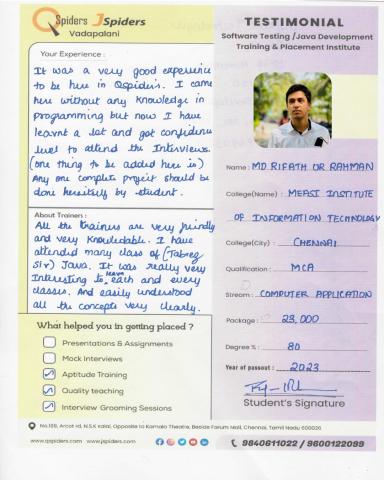 QSpiders JSpiders
Vadapalani
Your Experience :
It was a very good experience
to be here in Qspiders. I came
here without any knowledge in
programming but now I have
learnt a lot and got confidence
level to attend the Interviews.
(one thing to be added here is)
Any one complete project should be
done
by student.
About Trainers :
All the trainers are very friendly
and very knowledable. I have
attended many class of (Tabrez
Sir) Java. It was really very
Interesting to learn each and every
classes. And easily understood
all the concepts very clearly.
What helped you in getting placed ?
Presentations & Assignments
Mock Interviews
Aptitude Training
Quality teaching
Interview Grooming Sessions
TESTIMONIAL
Software Testing /Java Development
Training & Placement Institute
Name : MD RIFATH UR RAHMAN
College(Name) : MEASI INSTITUTE
OF INFORMATION TECHNOLOGY
College(City) : CHENNAI
Qualification : MCA
Stream : COMPUTER APPLICATION
Package : 23,000
Degree % : 80
Year of passout : 2023
Student's Signature
No.189, Arcot rd, N.S.K salai, Opposite to Kamala Theatre, Beside Forum Mall, Chennai, Tamil Nadu 600026
www.qspiders.com www.jspiders.com
9840611022 / 9600122099